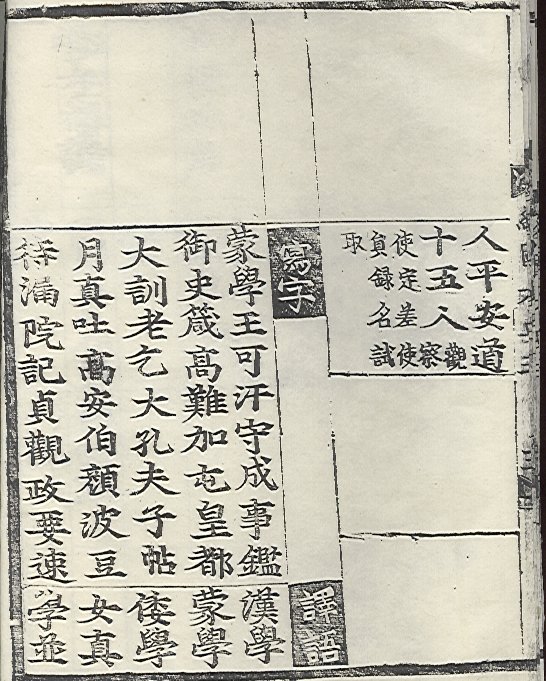 人平安道
十五人觀
察
使定差使
員錄名試
取
寫字
蒙學王可汗守成事鑑
御史箴高難加屯皇都
大訓老乞大孔夫子帖
月真吐高安伯顏波豆
待漏院記貞觀政要速
譯語
漢學
蒙學
倭學
女真
學並